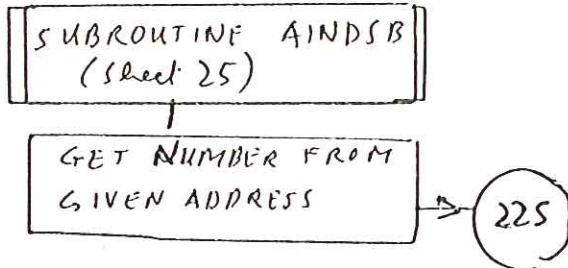 SUBROUTINE AINDSB
(Sheet 25)
GET NUMBER FROM
GIVEN ADDRESS
225